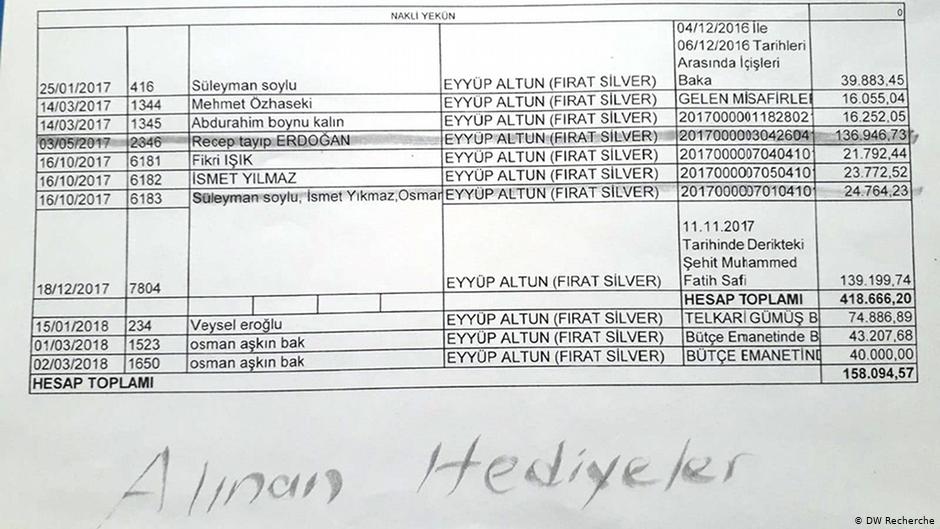 NAKLİ YEKÜN 0
25/01/2017 416 Süleyman soylu EYYÜP ALTUN (FIRAT SILVER) 04/12/2016 İle 06/12/2016 Tarihleri Arasında İçişleri Baka 39.883,45
14/03/2017 1344 Mehmet Özhaseki EYYÜP ALTUN (FIRAT SILVER) GELEN MİSAFİRLE 16.055,04
14/03/2017 1345 Abdurahim boynu kalın EYYÜP ALTUN (FIRAT SILVER) 2017000001182802 16.252,05
03/05/2017 2346 Recep tayıp ERDOĞAN EYYÜP ALTUN (FIRAT SILVER) 2017000003042604 136.946,73
16/10/2017 6181 Fikri IŞIK EYYÜP ALTUN (FIRAT SILVER) 2017000007040410 21.792,44
16/10/2017 6182 İSMET YILMAZ EYYÜP ALTUN (FIRAT SILVER) 2017000007050410 23.772,52
16/10/2017 6183 Süleyman soylu, İsmet Yıkmaz,Osman EYYÜP ALTUN (FIRAT SILVER) 2017000007010410 24.764,23
18/12/2017 7804 EYYÜP ALTUN (FIRAT SILVER) 11.11.2017 Tarihinde Derikteki Şehit Muhammed Fatih Safi 139.199,74
HESAP TOPLAMI 418.666,20
15/01/2018 234 Veysel eroğlu EYYÜP ALTUN (FIRAT SILVER) TELKARİ GÜMÜŞ B 74.886,89
01/03/2018 1523 osman aşkın bak EYYÜP ALTUN (FIRAT SILVER) Bütçe Emanetinde B 43.207,68
02/03/2018 1650 osman aşkın bak EYYÜP ALTUN (FIRAT SILVER) BÜTÇE EMANETİND 40.000,00
HESAP TOPLAMI 158.094,57
Alınan Hediyeler
© DW Recherche